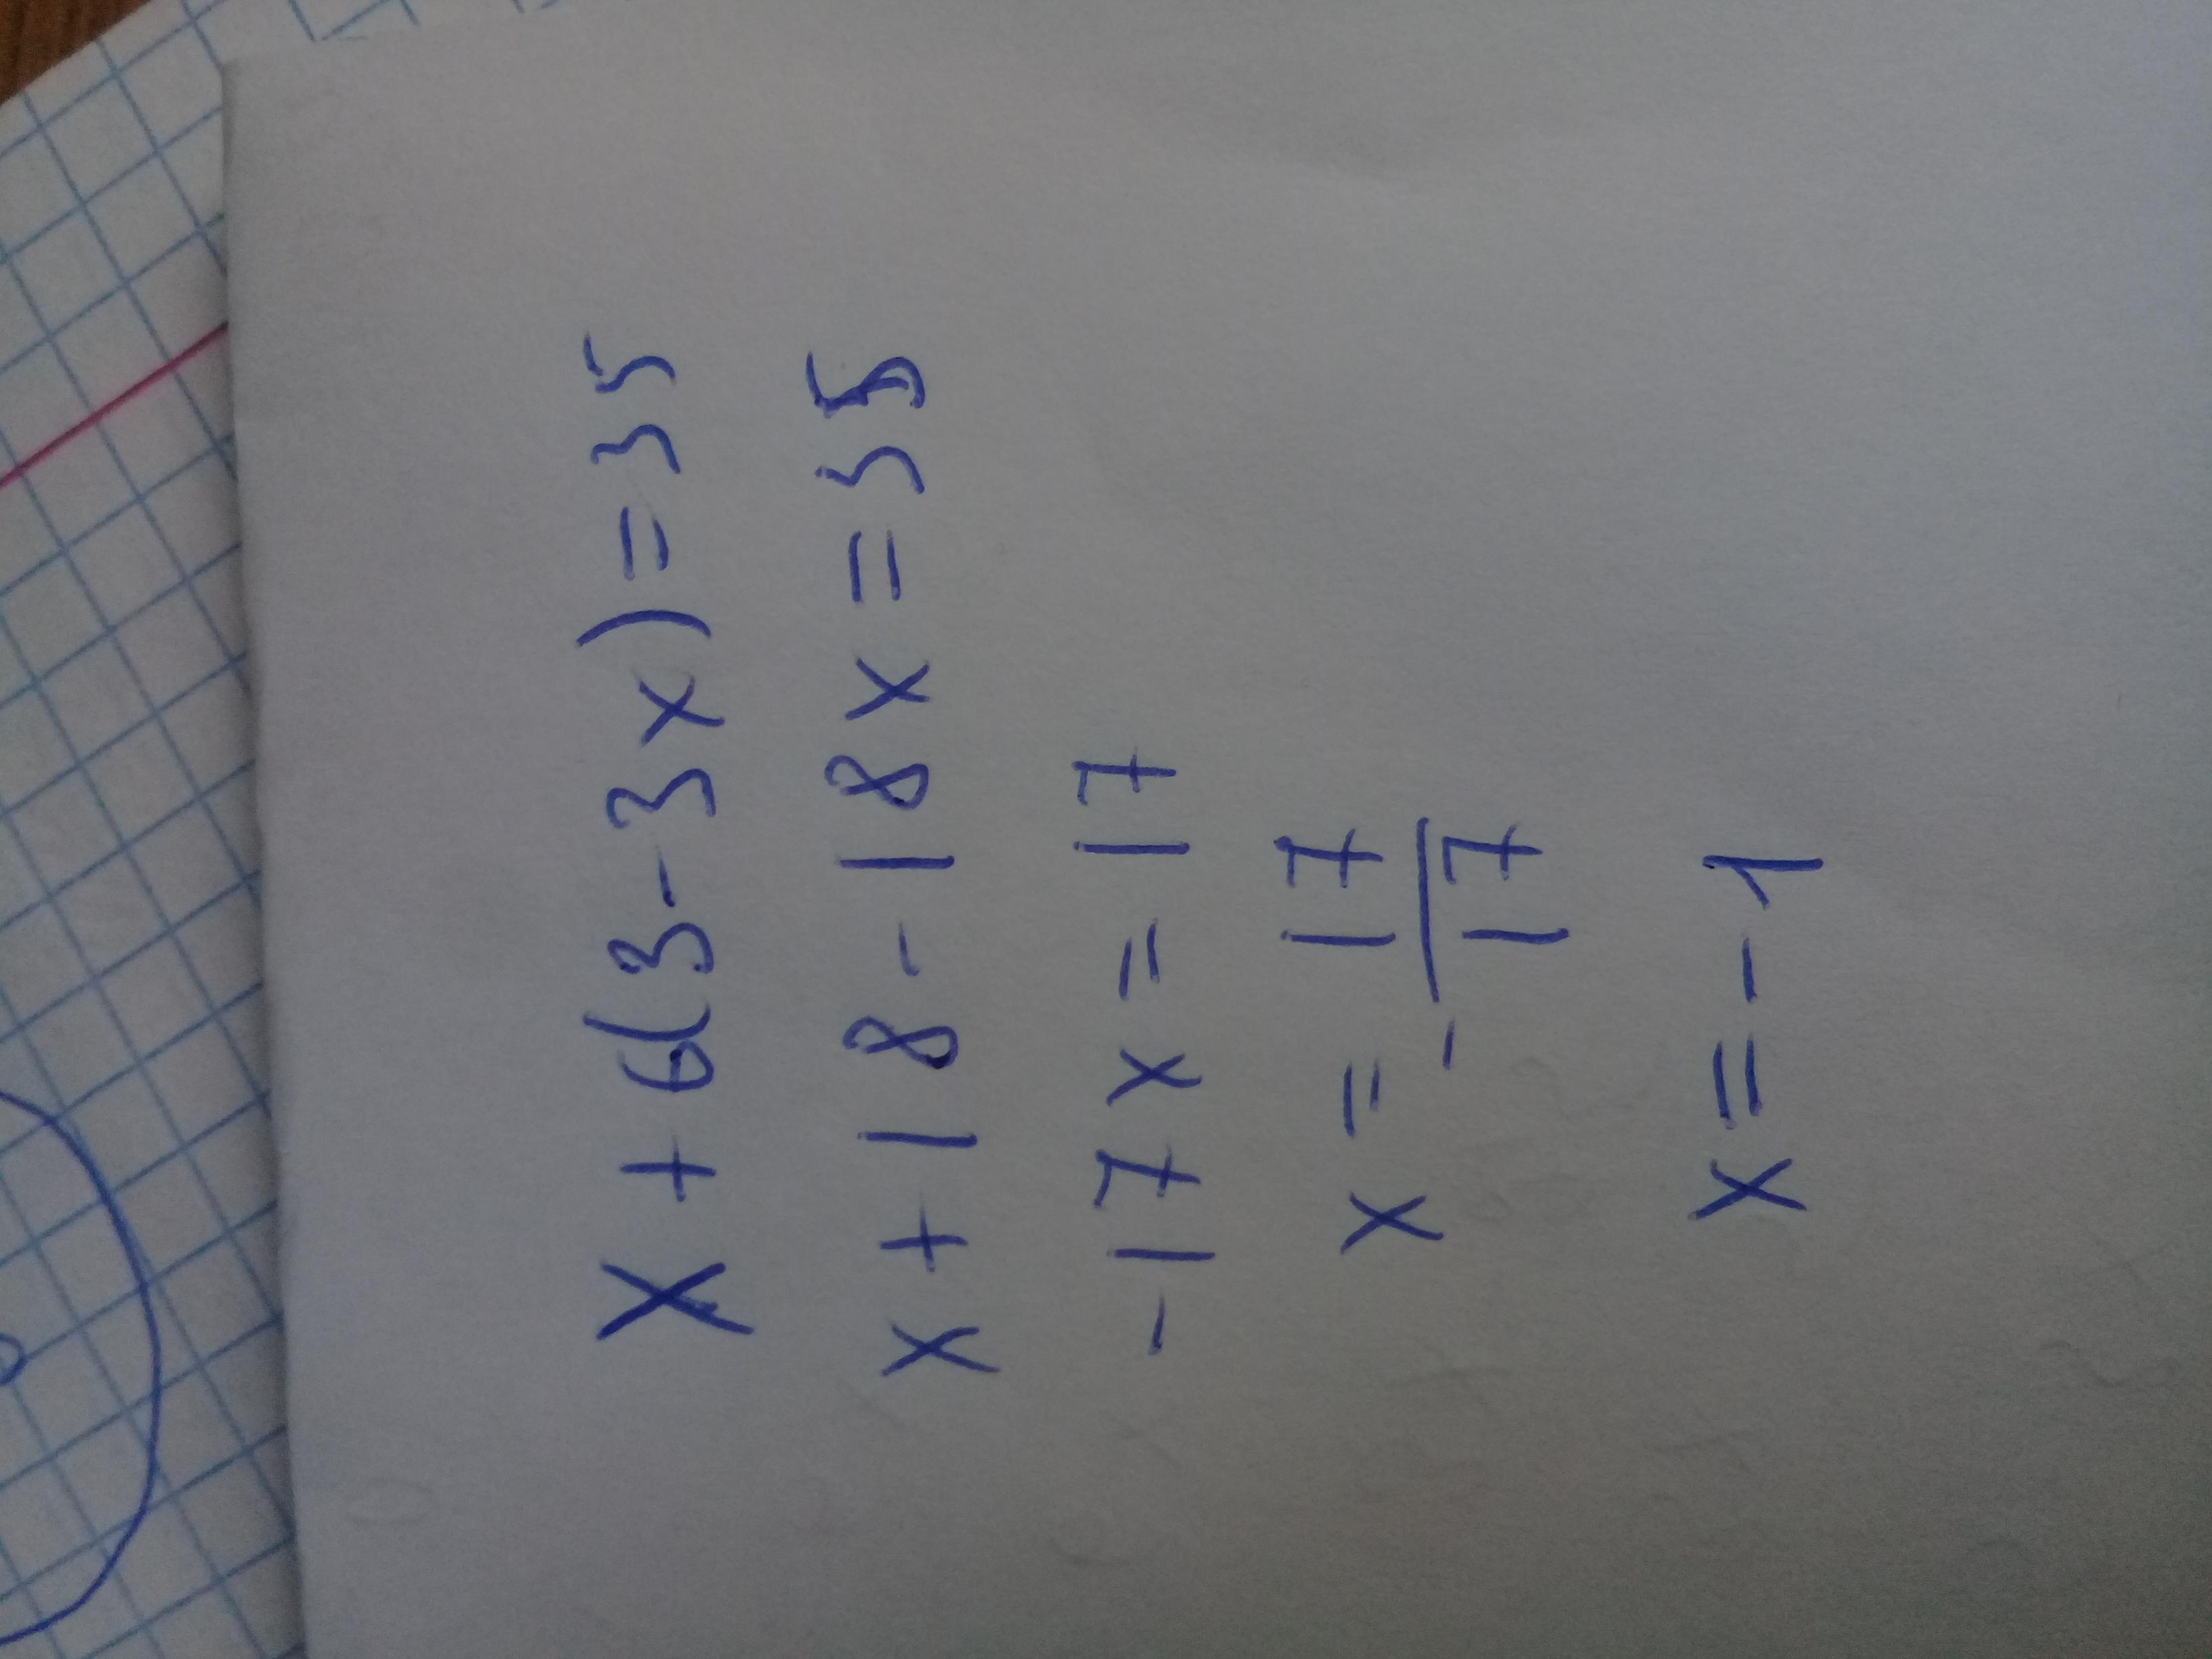 x + 6(3 - 3x) = 35
x + 18 - 18x = 35
-17x = 17
x = - 17/17
x = -1